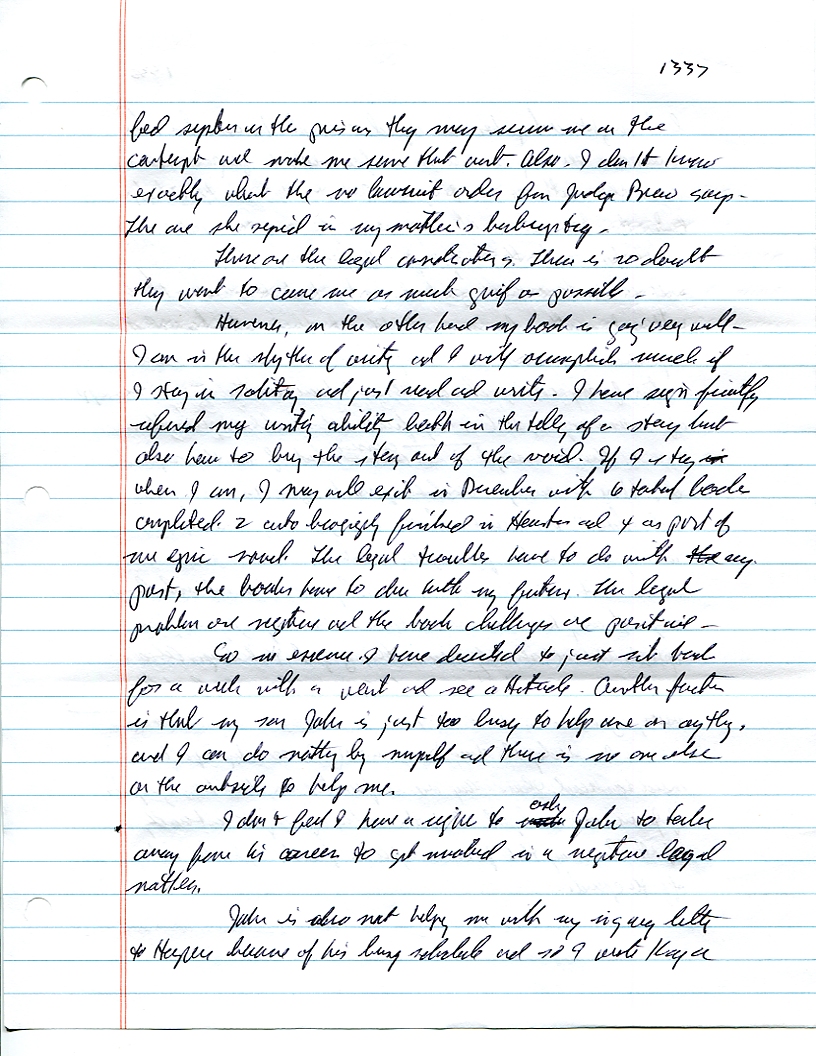 1337
bed in the prison they may serve me on the
contempt and make me serve that out. Also. I don't know
exactly what the no lawsuit order from Judge says -
The one she signed in my mother's bankruptcy -
These are the legal considerations. There is no doubt
they want to cause me as much grief as possible -
However, on the other hand my book is going very well -
I am in the rhythm of writing and I will accomplish much if
I stay in solitary and just read and write. I have significantly
refined my writing ability both in the telling of a story but
also how to bring the story out of the void. If I stay in
when I am, I may well exit in December with 6 total books
completed. 2 finished in Houston and 4 as part of
my epic novel. The legal troubles have to do with the my
past, the books have to do with my future. The legal
problem are negative and the book challenges are positive -
So in essence I have decided to just sit back
for a week with a wait and see attitude. Another factor
is that my son John is just too busy to help me on anything,
and I can do nothing by myself and there is no one else
on the outside to help me.
I don't feel I have a right to ask John to take
away from his career to get involved in a negative legal
matter.
John is also not helping me with my inquiry letter
to Harpers because of his busy schedule and so I wrote